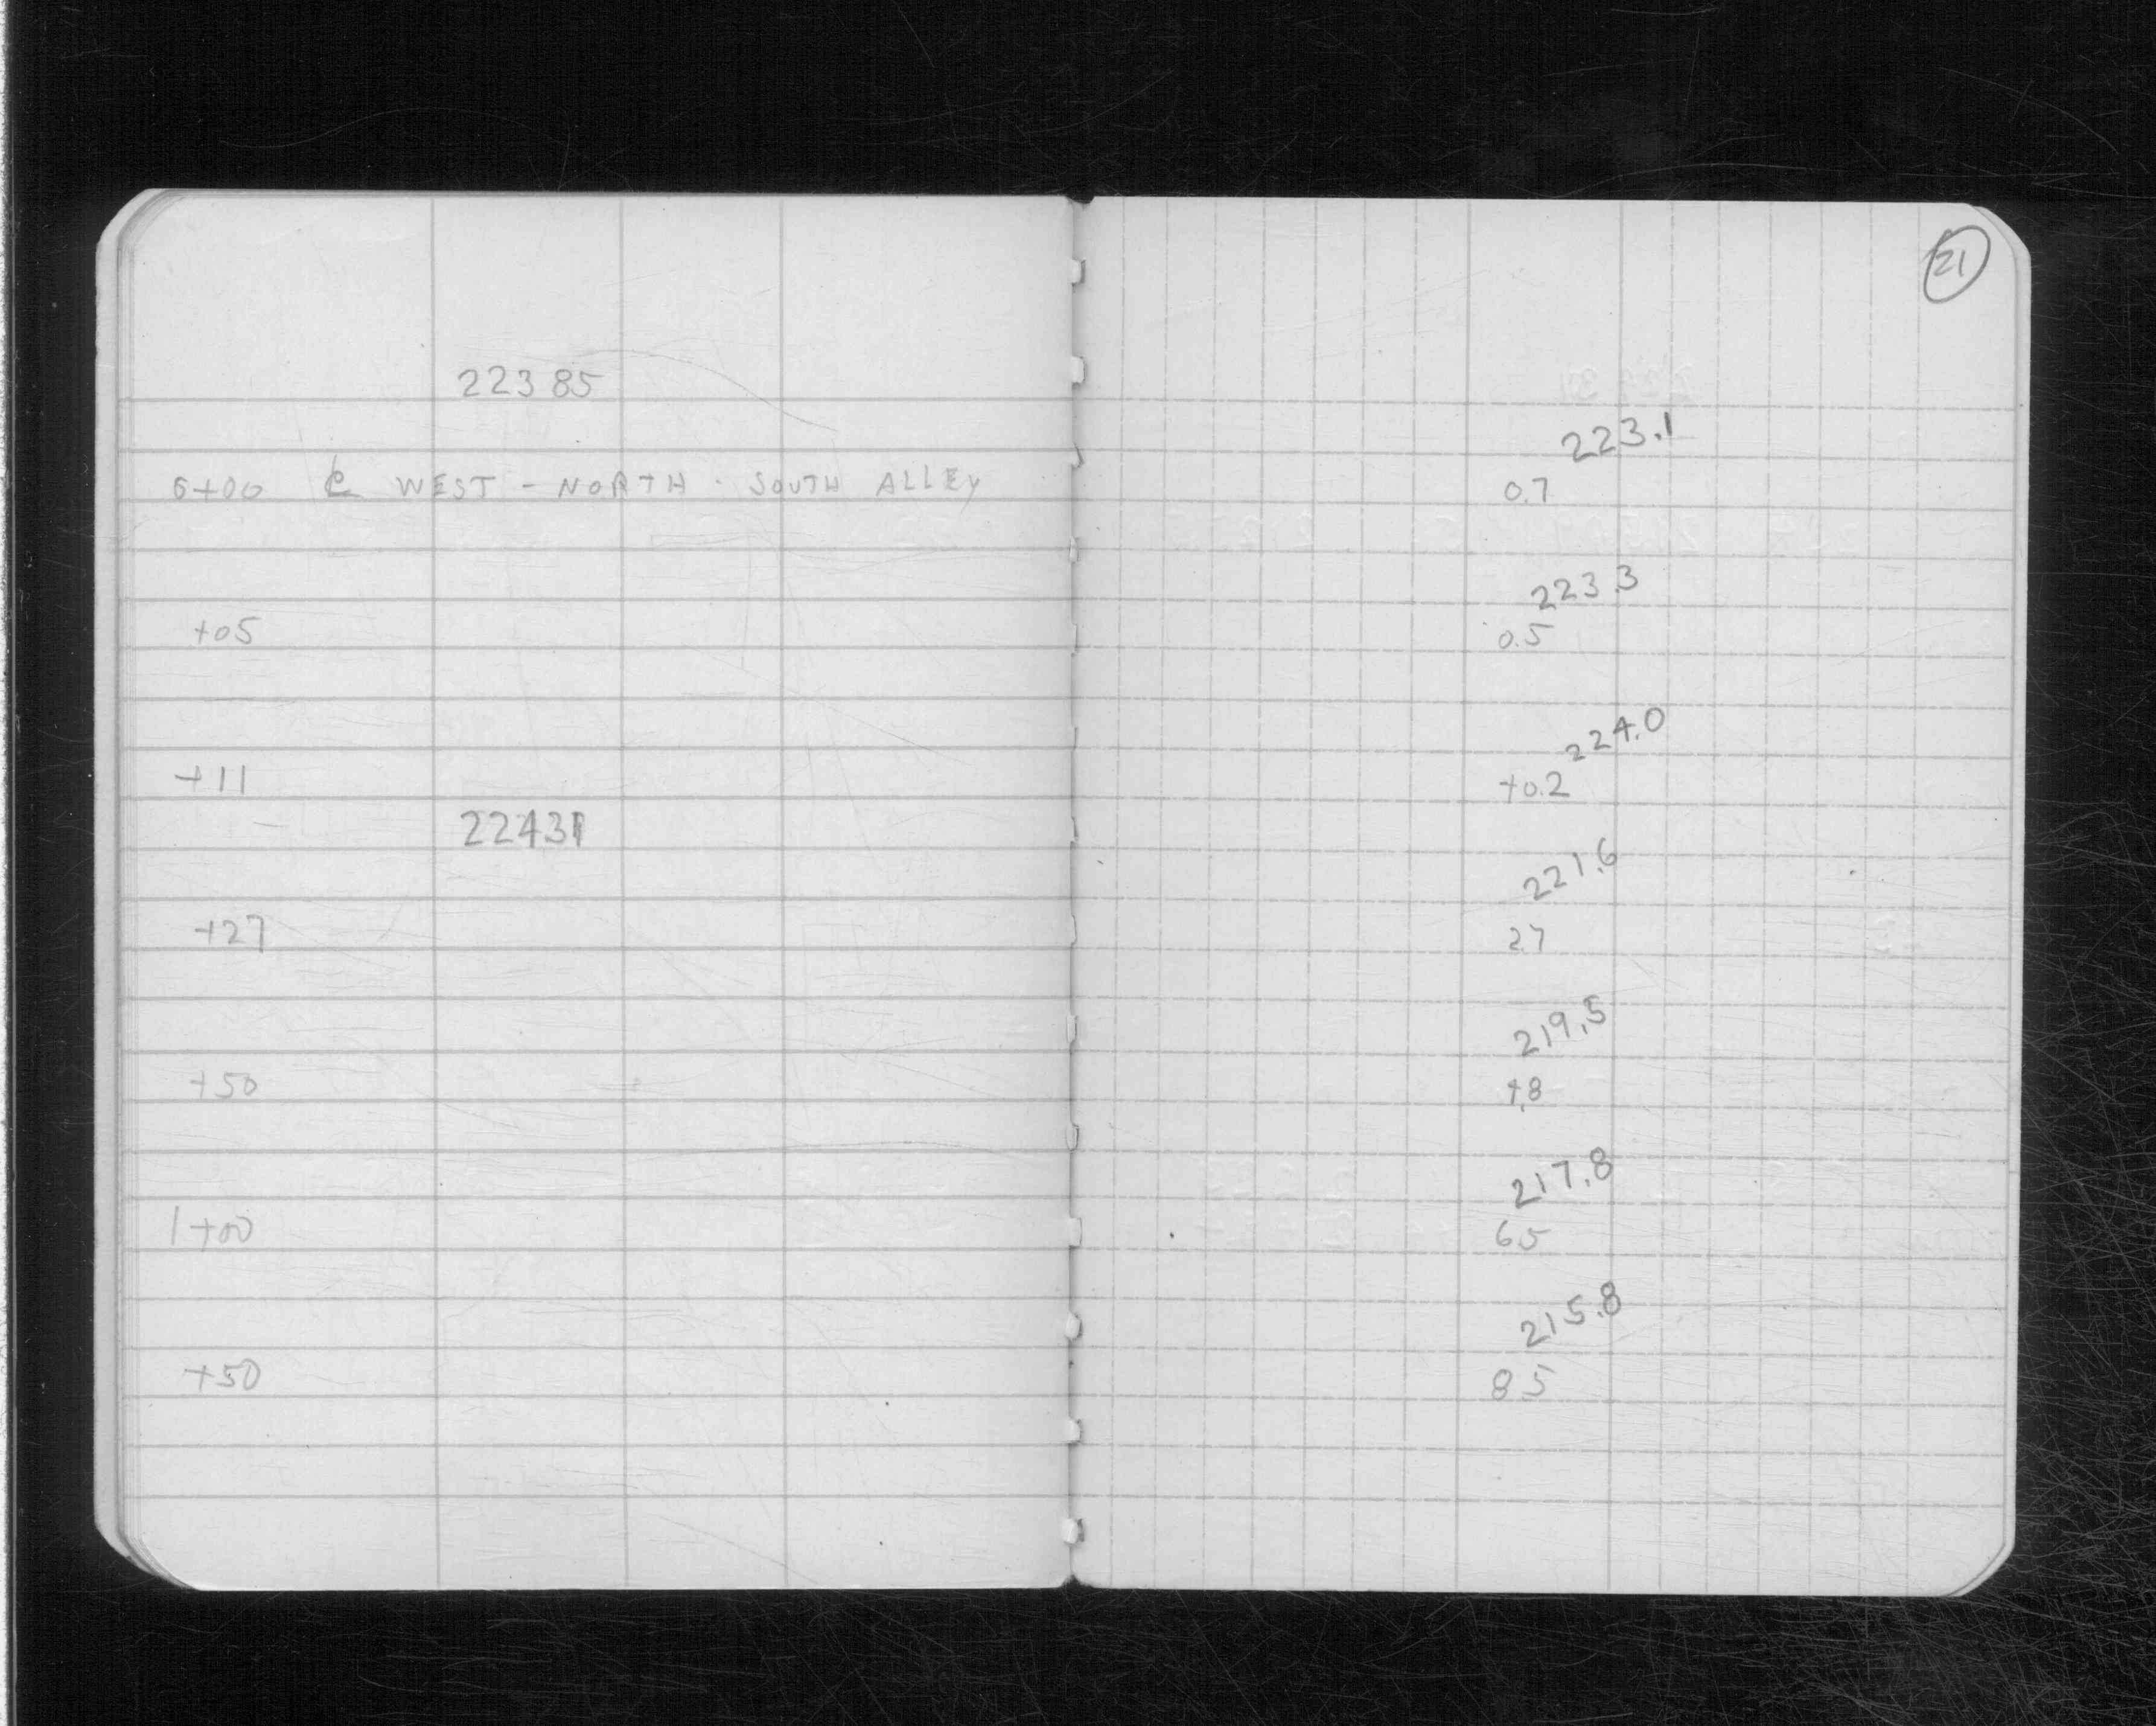 21
223 85
223.1
0+00 ℄ WEST - NORTH - SOUTH ALLEY 0.7
223.3
+05 0.5
224.0
+11 +0.2
22431
221.6
+27 2.7
219.5
+50 4.8
217.8
1+00 6.5
215.8
+50 8.5